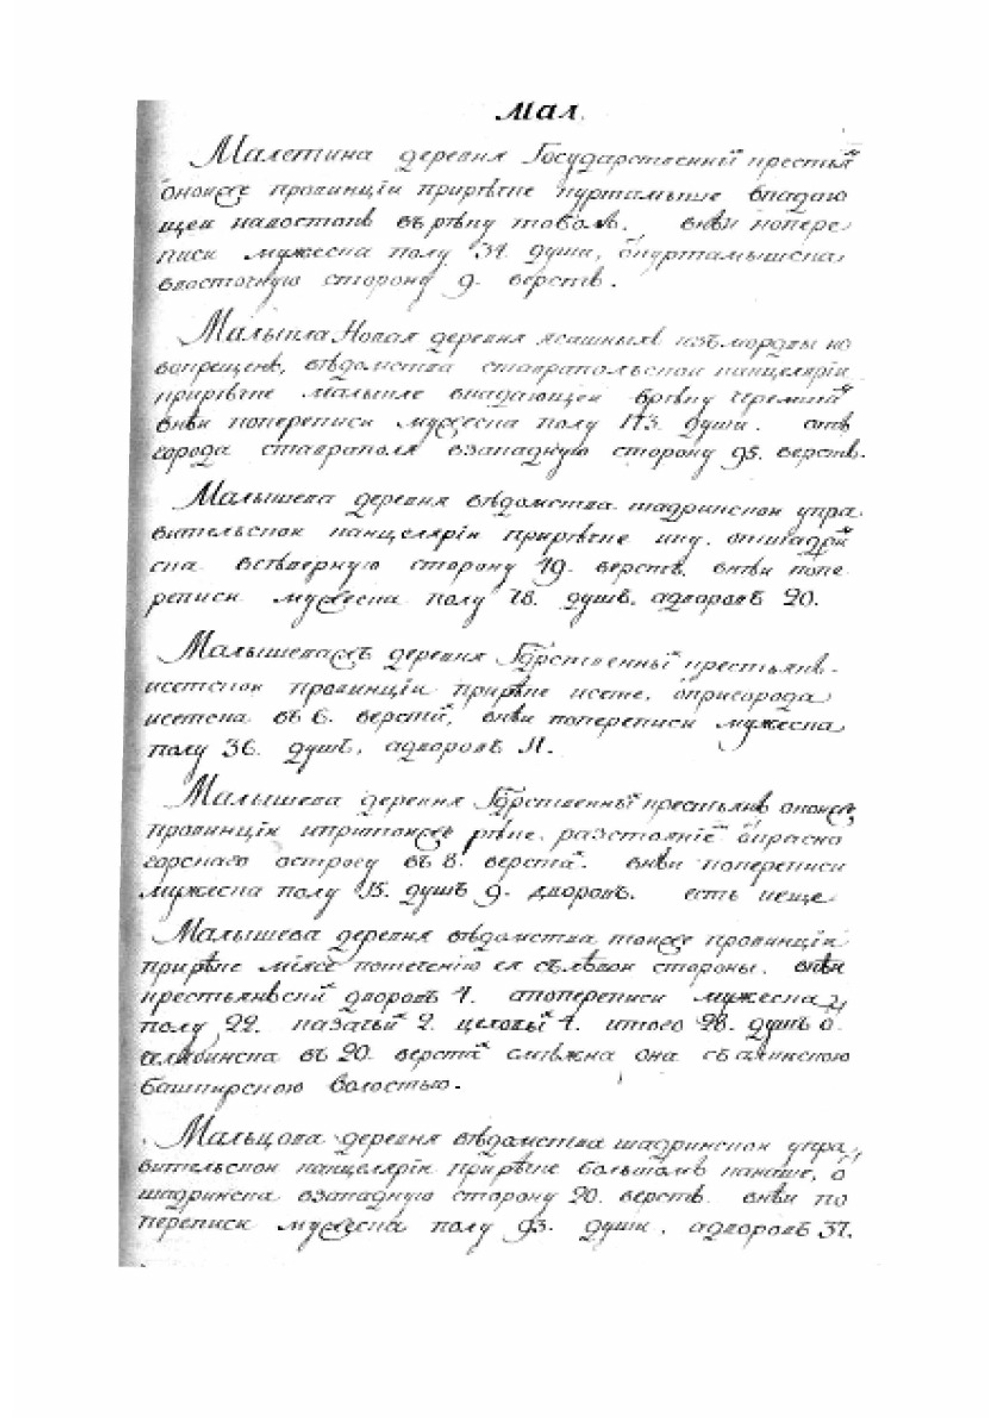 Мал.
Малетина деревня Государственныⷯ крестьяⷩ
оной же провинціи приречке куртамыше впадаю
щеи налостове въ реку тоболъ. внеи попере
писи мужеска полу 34. души, ѿкуртамышска
ввосточную сторону 9. верстъ.
Малыкла Новая деревня ясашныхъ изъ мордвы но
вокрещенъ, ведомства ставропольской канцелярїи
приречке малыкле впадающеи вреку черемшаⷩ
внеи попереписи мужеска полу 173. души. отъ
города ставрополя взападную сторону 95. верстъ.
Малышева деревня ведомства шадринской упра
вительской канцелярїи приречке ику. ѿшадриⷩ
ска всеверную сторону 19. верстъ, внеи попе
реписи мужеска полу 78. душъ, адворовъ 20.
Малышева жъ деревня Гдⷭ҇рственныⷯ крестьянъ
исетской провинціи приреке исете, ѿпригорода
исетска въ 6. верстаⷯ, внеи попереписи мужеска
полу 36. душъ, адворовъ 11.
Малышева деревня Гдⷭ҇рственныⷯ крестьянъ оной же
провинціи
реке. разстоянїеⷨ ѿкрасно
горскаго острогу въ 8. верстаⷯ. внеи попереписи
мужеска полу 15. душъ 9. дворовъ. есть иеще
Малышева деревня ведомства тоя же провинціи
приреке мїясе потеченїю ея слевой стороны. внеи
крестьянскиⷯ дворовъ 4. апопереписи мужеска
полу 22. казачьиⷯ 2. целовыⷯ 4. итого 28. душъ ѿ
челябинска въ 20. верстаⷯ смежна она съ
башкирскою волостью.
Мальцова деревня ведомства шадринской упра
вительской канцелярїи приречке большомъ канаше, ѿ
шадринска взападную сторону 20. верстъ. внеи по
переписи мужеска полу 93. души, адворовъ 37.